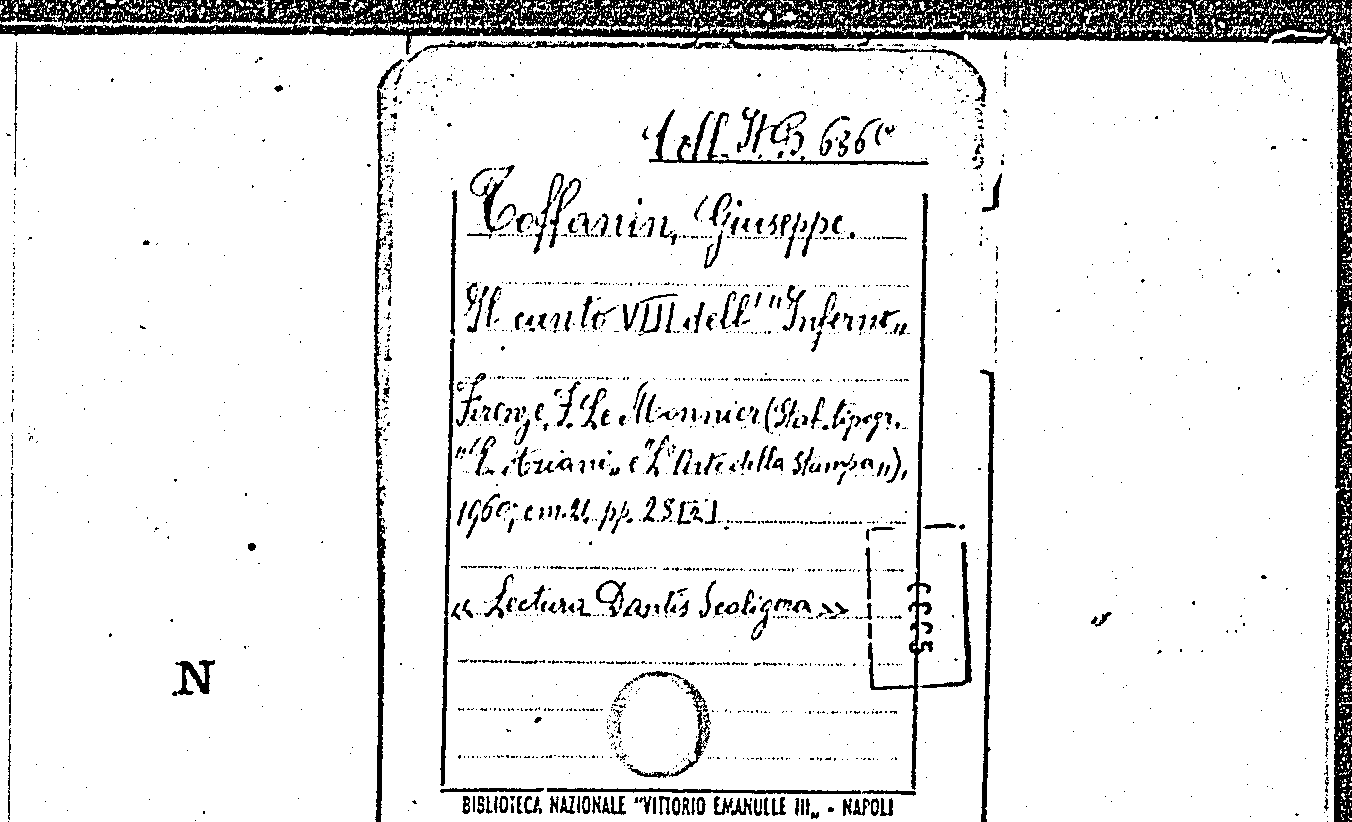 Coll. It. B. 636
Toffanin, Giuseppe.
Il canto VIII dell' "Inferno„
Firenze, F. Le Monnier (Stab. tipogr.
"E. Ariani„ e "L'Arte della Stampa„),
1960; cm. 21. pp. 28 [2].
« Lectura Dantis Scaligera »
N
BIBLIOTECA NAZIONALE "VITTORIO EMANUELE III„ - NAPOLI